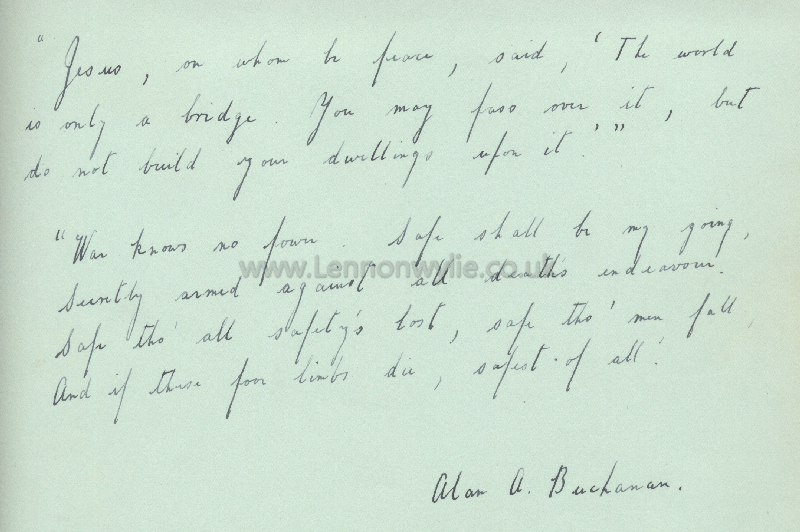 "Jesus, on whom be peace, said, 'The world
is only a bridge. You may pass over it, but
do not build your dwellings upon it.'"
"War knows no power. Safe shall be my going,
Secretly armed against all death's endeavour.
Safe tho' all safety's lost, safe tho' men fall,
And if these poor limbs die, safest of all".
Alan A. Buchanan.
www.Lennonwylie.co.uk